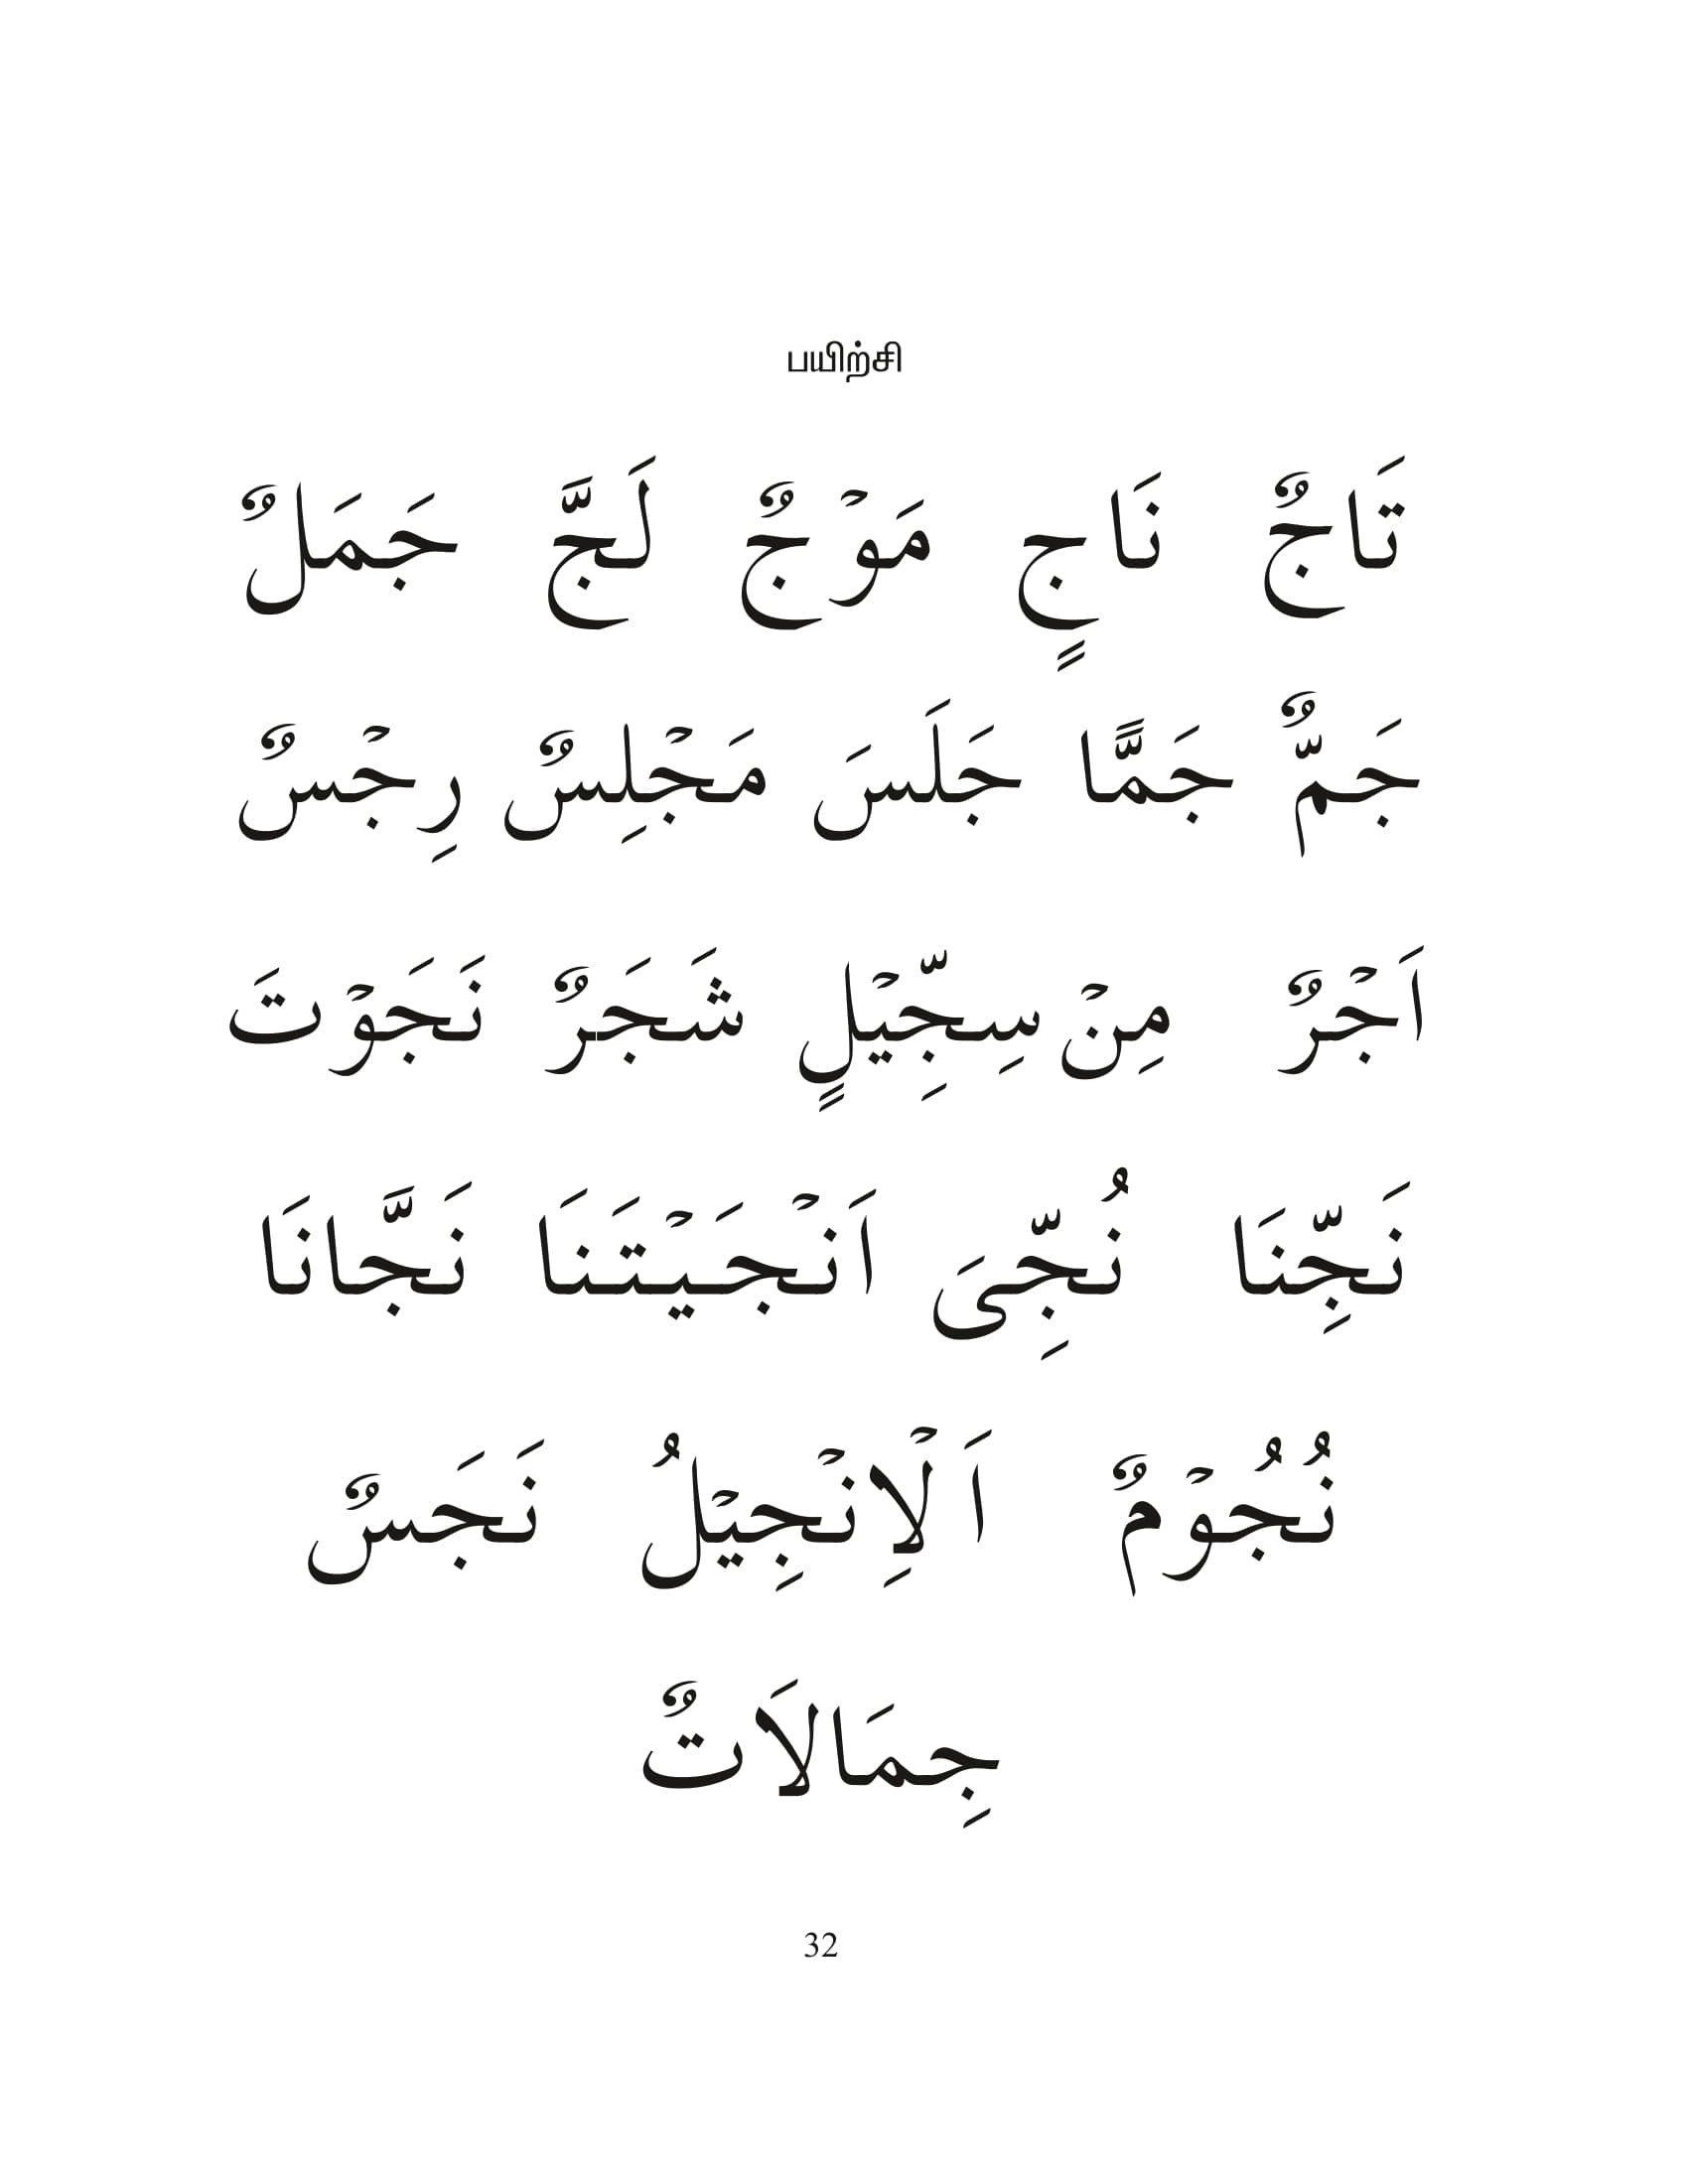 பயிற்சி
تَاجٌ نَاجٍ مَوْجٌ لَجَّ جَمَلٌ
جَمٌّ جَمًّا جَلَسَ مَجْلِسٌ رِجْسٌ
اَجْرٌ مِنْ سِجِّيْلٍ شَجَرٌ نَجَوْتَ
نَجِّنَا نُجِّىَ اَنْجَيْتَنَا نَجَّانَا
نُجُوْمٌ اَلْاِنْجِيْلُ نَجَسٌ
جِمَالَاتٌ
32